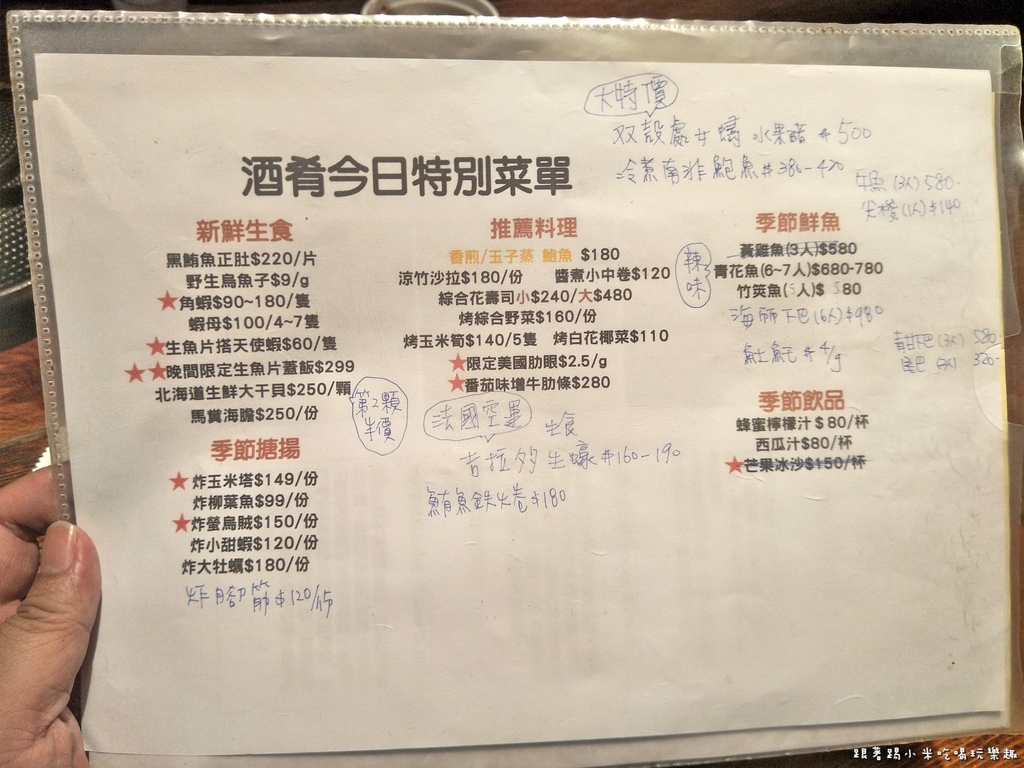 大特價
双殼處女蟳 水果醋 $500
冷煮南非鮑魚 $380-420
午魚(3人)580-
尖梭(1人)$140
酒肴今日特別菜單
新鮮生食
黑鮪魚正肚$220/片
野生烏魚子$9/g
★角蝦$90~180/隻
蝦母$100/4~7隻
★生魚片搭天使蝦$60/隻
★★晚間限定生魚片蓋飯$299
北海道生鮮大干貝$250/顆
第2顆半價
馬糞海膽$250/份
季節搪揚
★炸玉米塔$149/份
炸柳葉魚$99/份
★炸螢烏賊$150/份
炸小甜蝦$120/份
炸大牡蠣$180/份
炸腳筋$120/份
推薦料理
香煎/玉子蒸 鮑魚 $180
涼竹沙拉$180/份 醬煮小中卷$120
辣味
綜合花壽司小$240/大$480
烤綜合野菜$160/份
烤玉米筍$140/5隻 烤白花椰菜$110
★限定美國肋眼$2.5/g
★番茄味增牛肋條$280
法國空運 生食
吉拉多生蠔 $160-190
鮪魚鉄火卷$180
季節鮮魚
黃雞魚(3人)$580
青花魚(6~7人)$680-780
竹筴魚(5人)$580
海鱺下巴(6人)$980
魟魠 $4/g
青甘下巴(3人)580-
尾巴 320-
季節飲品
蜂蜜檸檬汁$80/杯
西瓜汁$80/杯
★芒果冰沙$150/杯
跟著踢小米吃喝玩樂趣